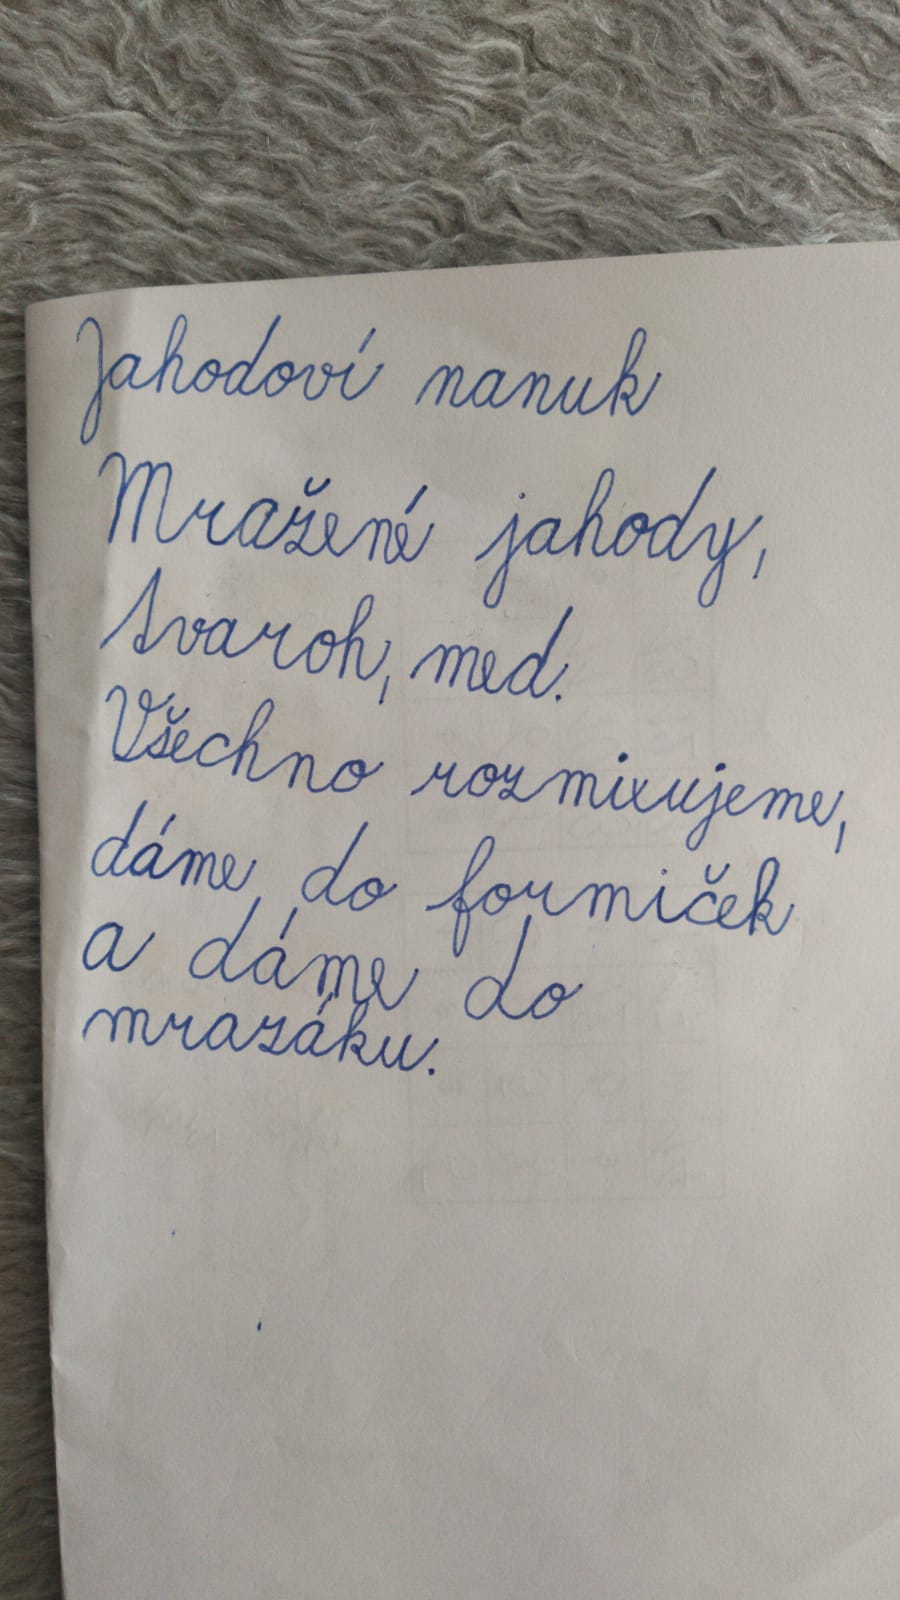 Jahodoví nanuk
Mražené jahody,
tvaroh, med.
Všechno rozmixujeme,
dáme do formiček
a dáme do
mrazáku.